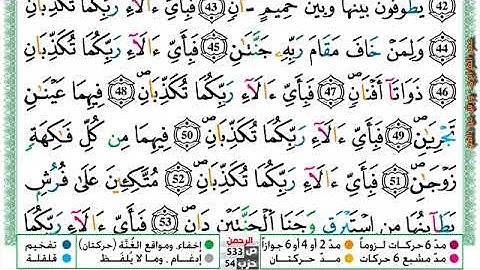 42 يَطُوفُونَ بَيْنَهَا وَبَيْنَ حَمِيمٍ ءَانٍ 43 فَبِأَيِّ ءَالَآءِ رَبِّكُمَا تُكَذِّبَانِ
44 وَلِمَنْ خَافَ مَقَامَ رَبِّهِۦ جَنَّتَانِ 45 فَبِأَيِّ ءَالَآءِ رَبِّكُمَا تُكَذِّبَانِ
46 ذَوَاتَآ أَفْنَانٍ 47 فَبِأَيِّ ءَالَآءِ رَبِّكُمَا تُكَذِّبَانِ 48 فِيهِمَا عَيْنَانِ
تَجْرِيَانِ 49 فَبِأَيِّ ءَالَآءِ رَبِّكُمَا تُكَذِّبَانِ 50 فِيهِمَا مِن كُلِّ فَٰكِهَةٍ
زَوْجَانِ 51 فَبِأَيِّ ءَالَآءِ رَبِّكُمَا تُكَذِّبَانِ 52 مُتَّكِـِٔينَ عَلَىٰ فُرُشٍۭ
بَطَآئِنُهَا مِنْ إِسْتَبْرَقٍ وَجَنَى ٱلْجَنَّتَيْنِ دَانٍ 53 فَبِأَيِّ ءَالَآءِ رَبِّكُمَا
مدّ 6 حركات لزوماً مدّ 2 أو 4 أو 6 جوازاً الرحمن إخفاء، ومواقع الغُنَّة (حركتان) تفخيم
مدّ مشبع 6 حركات مدّ حركتان 533 حزب 54 إدغام، وما لا يُلفَظ قلقلة